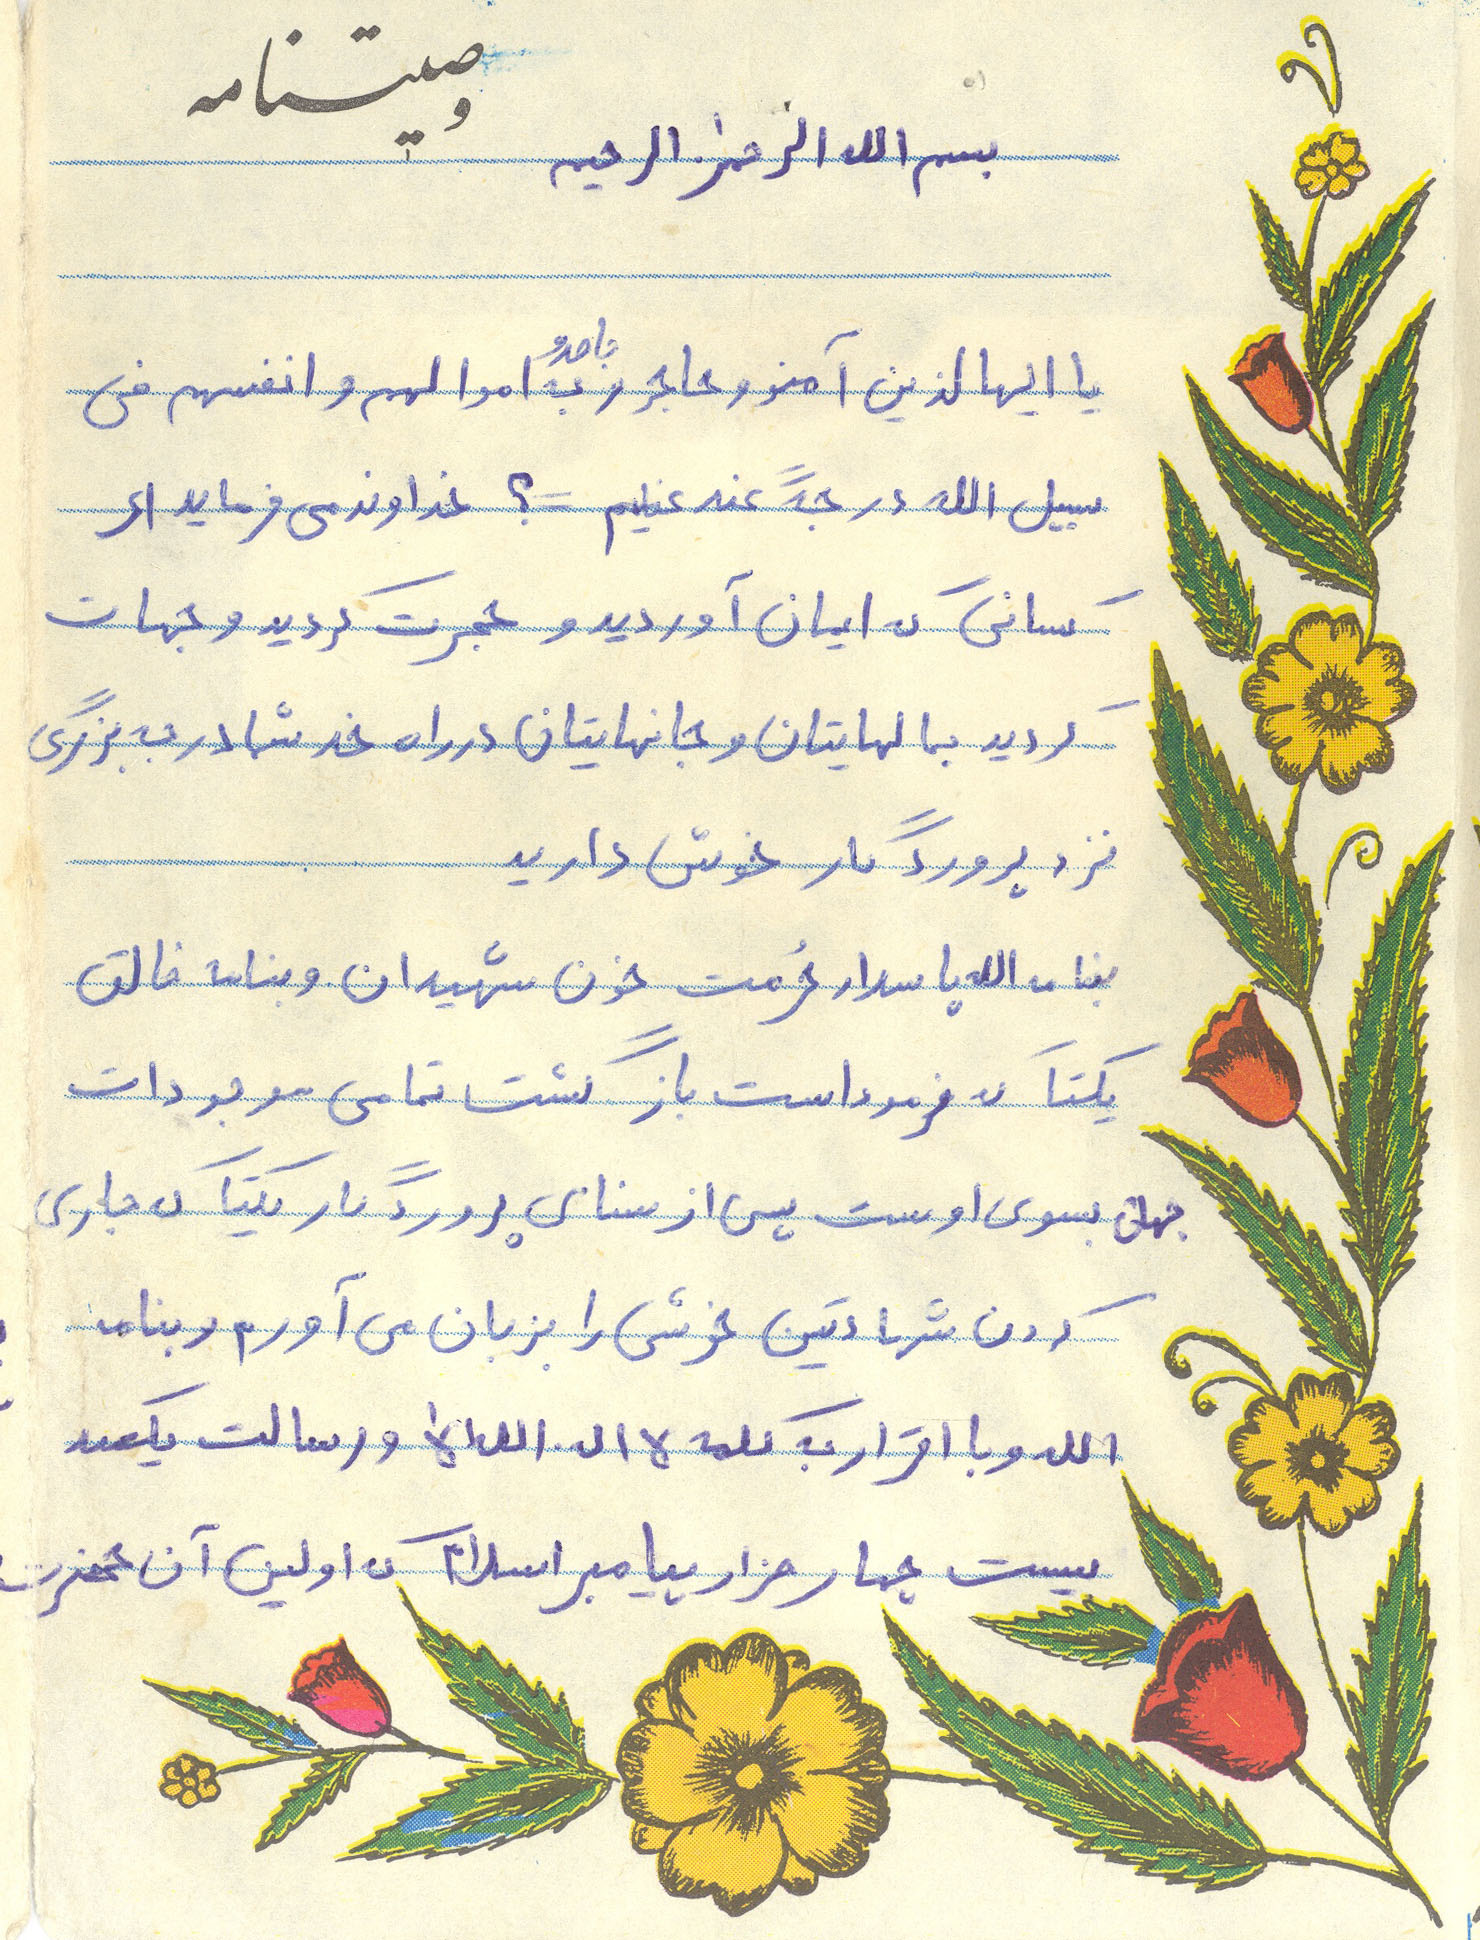 وصیتنامه
بسم الله الرحمن الرحیم
یا ایها لذین آمنو وحاجر و جاحدو به اموالهم و انفسهم فی
سبیل الله درجةً عند عظیم =؟ خداوند می فرماید ای
کسانی که ایمان آوردید و حجرت کردید و جهات
کردید بمالهایتان و جانهایتان در راه خد شما در به بزرگی
نزد پروردگار خوش دارید
بنام الله پاسدار حُرمت خون شهیدان و بنام خالق
یکتا که فرموداست بازگشت تمامی موجودات
جهان بسوی اوست پس از سنای پروردگار یکتا که جاری
کردن شهادتین خوش را بزبان می آورم و بنام
الله و با اقرار به کلمه لا اله الله الا و رسالت یکصد
بیست چهار حزار پیامبر اسلام که اولین آن حضرت